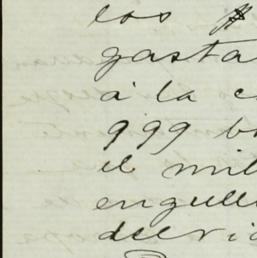 los
gasta
á la c
999 b
el mil
engull
desvia